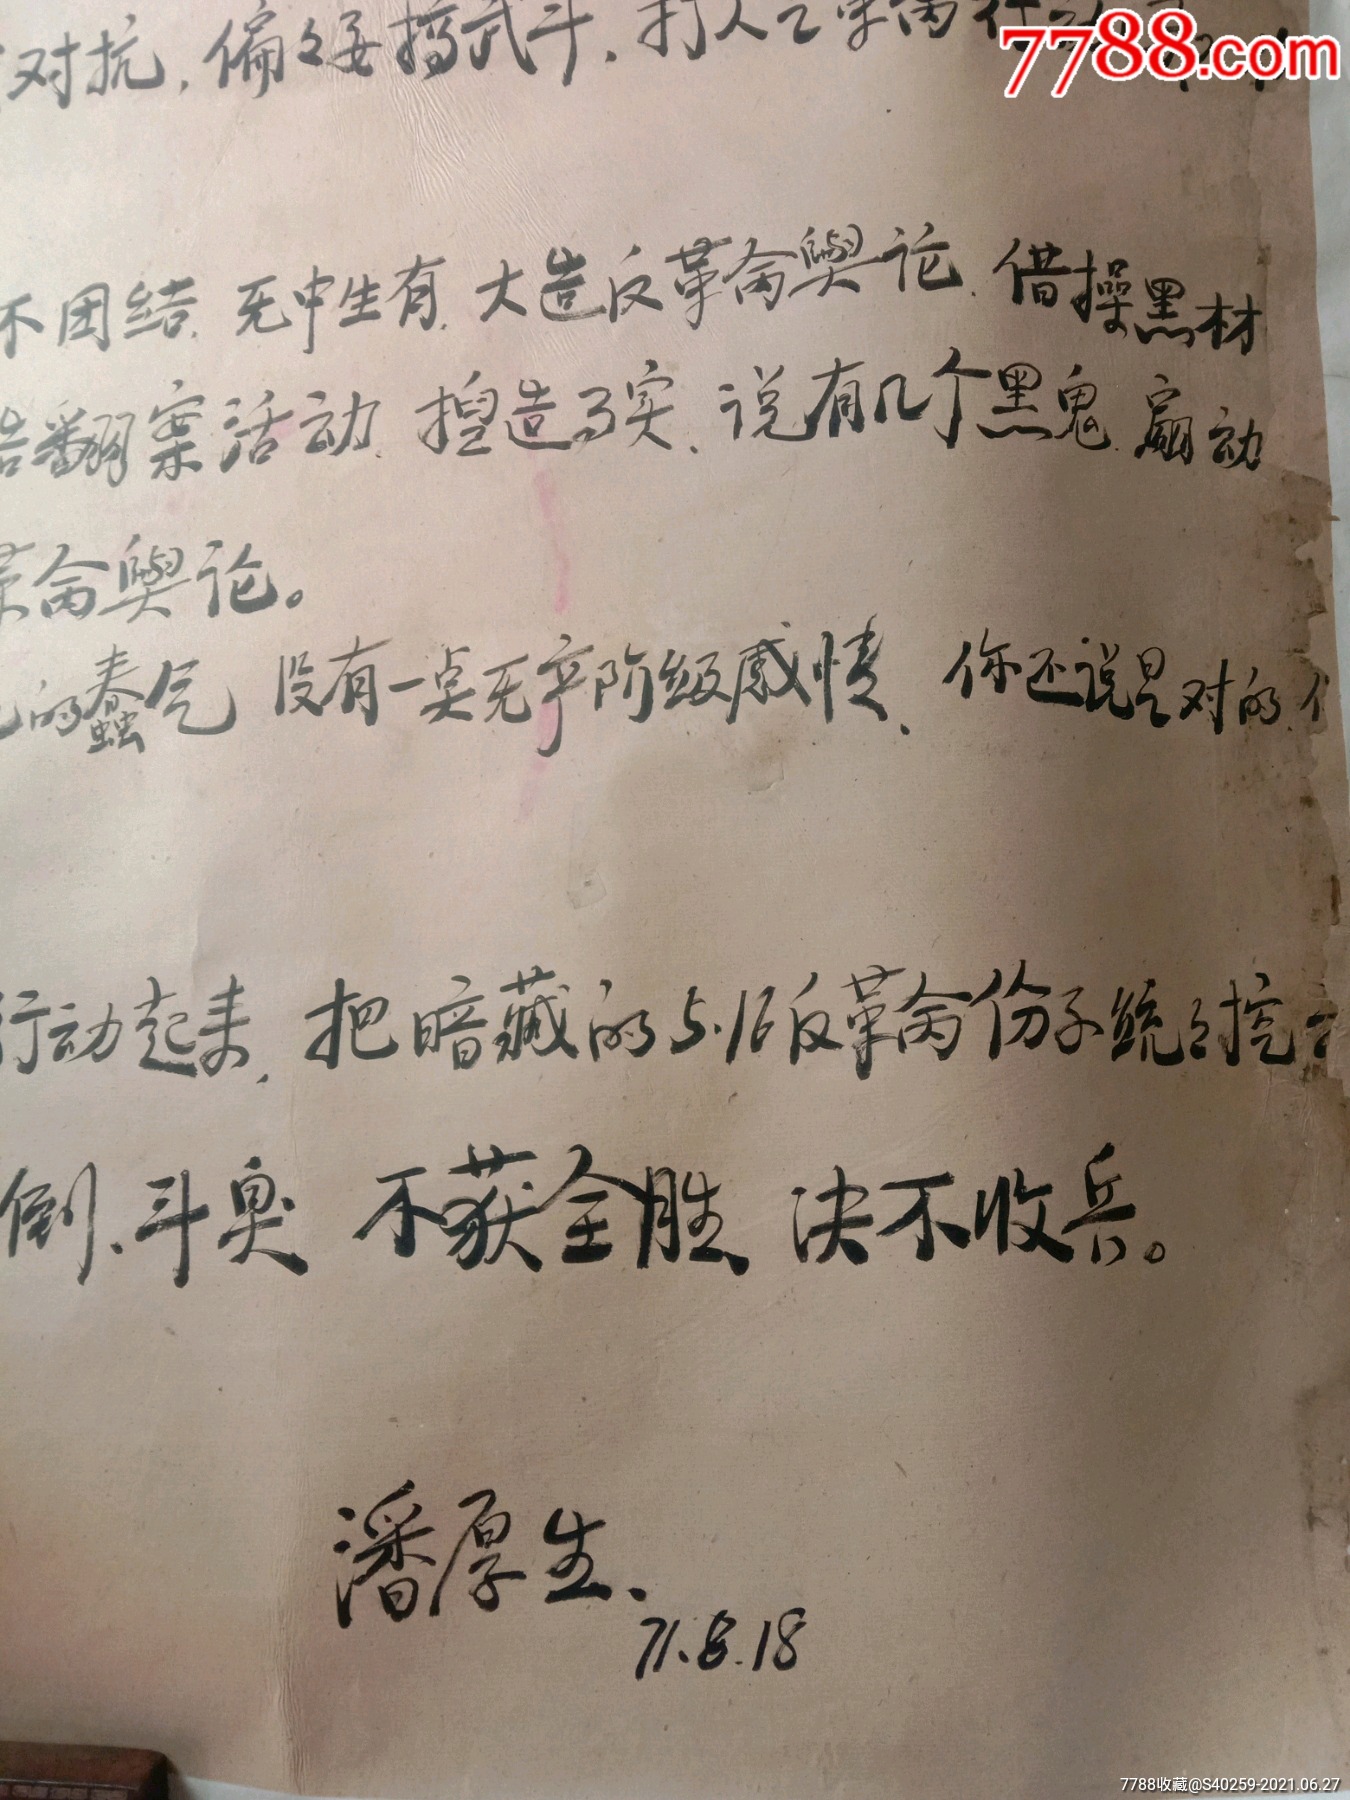 对抗,偏々要搞武斗,打人
7788.com
不团结,无中生有,大造反革命舆论,借操黑材
告翻案活动,捏造了实,说有几个黑鬼,扇动
革命舆论。
的蠢气 没有一点无产阶级感情、你还说是对的,
行动起来,把暗藏的5.16反革命份子统々挖
倒、斗臭 不获全胜 决不收兵。
潘厚生、
71.8.18
7788收藏@S40259-2021.06.27